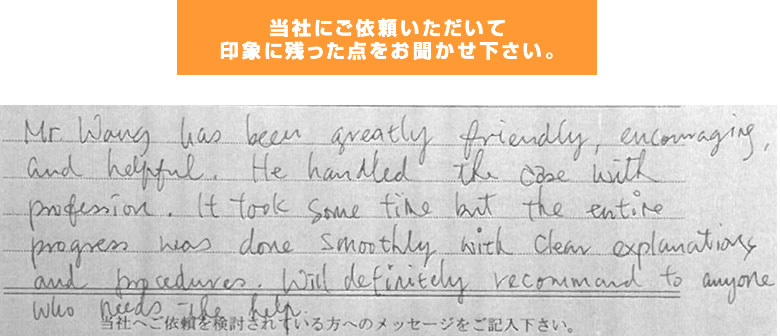 当社にご依頼いただいて
印象に残った点をお聞かせ下さい。
Mr. Wang has been greatly friendly, encouraging,
and helpful. He handled the case with
profession. It took some time but the entire
progress was done smoothly with clear explanations
and procedures. Will definitely recommand to anyone
who needs the help.
当社へご依頼を検討されている方へのメッセージをご記入下さい。